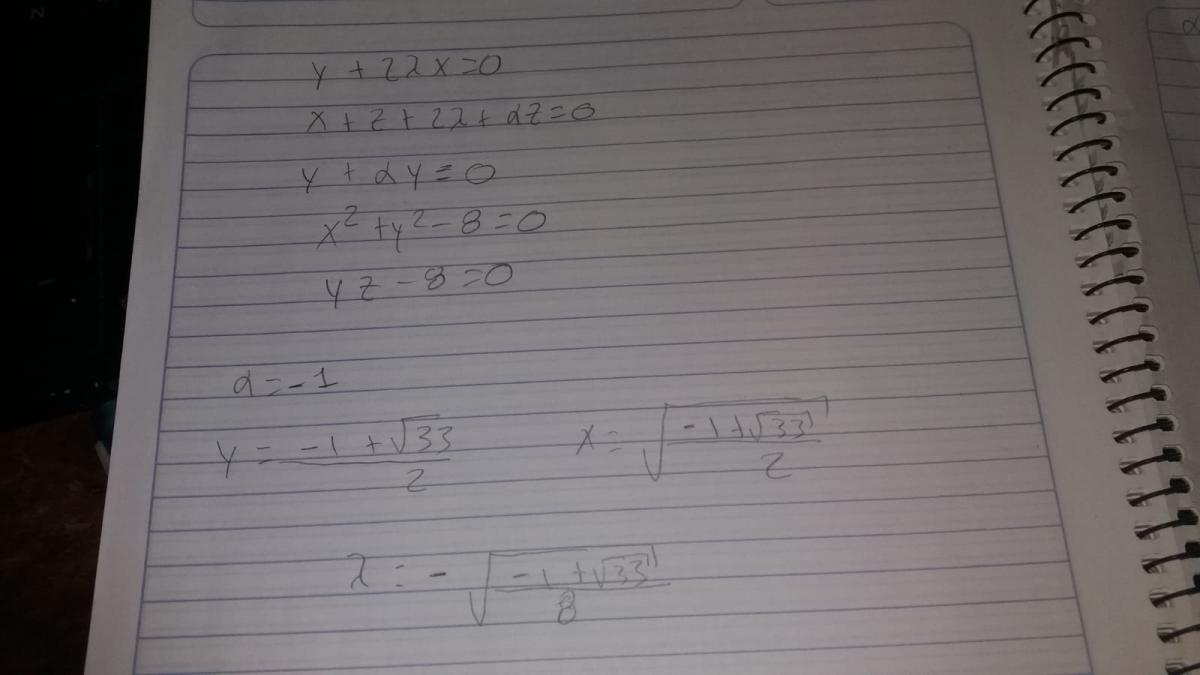 y + 2λx = 0
x + z + 2λ + αz = 0
y + αy = 0
x² + y² - 8 = 0
yz - 8 = 0
α = -1
y = (-1 + √33)/2    x = √((-1 + √33)/2)
λ = -√((-1 + √33)/8)